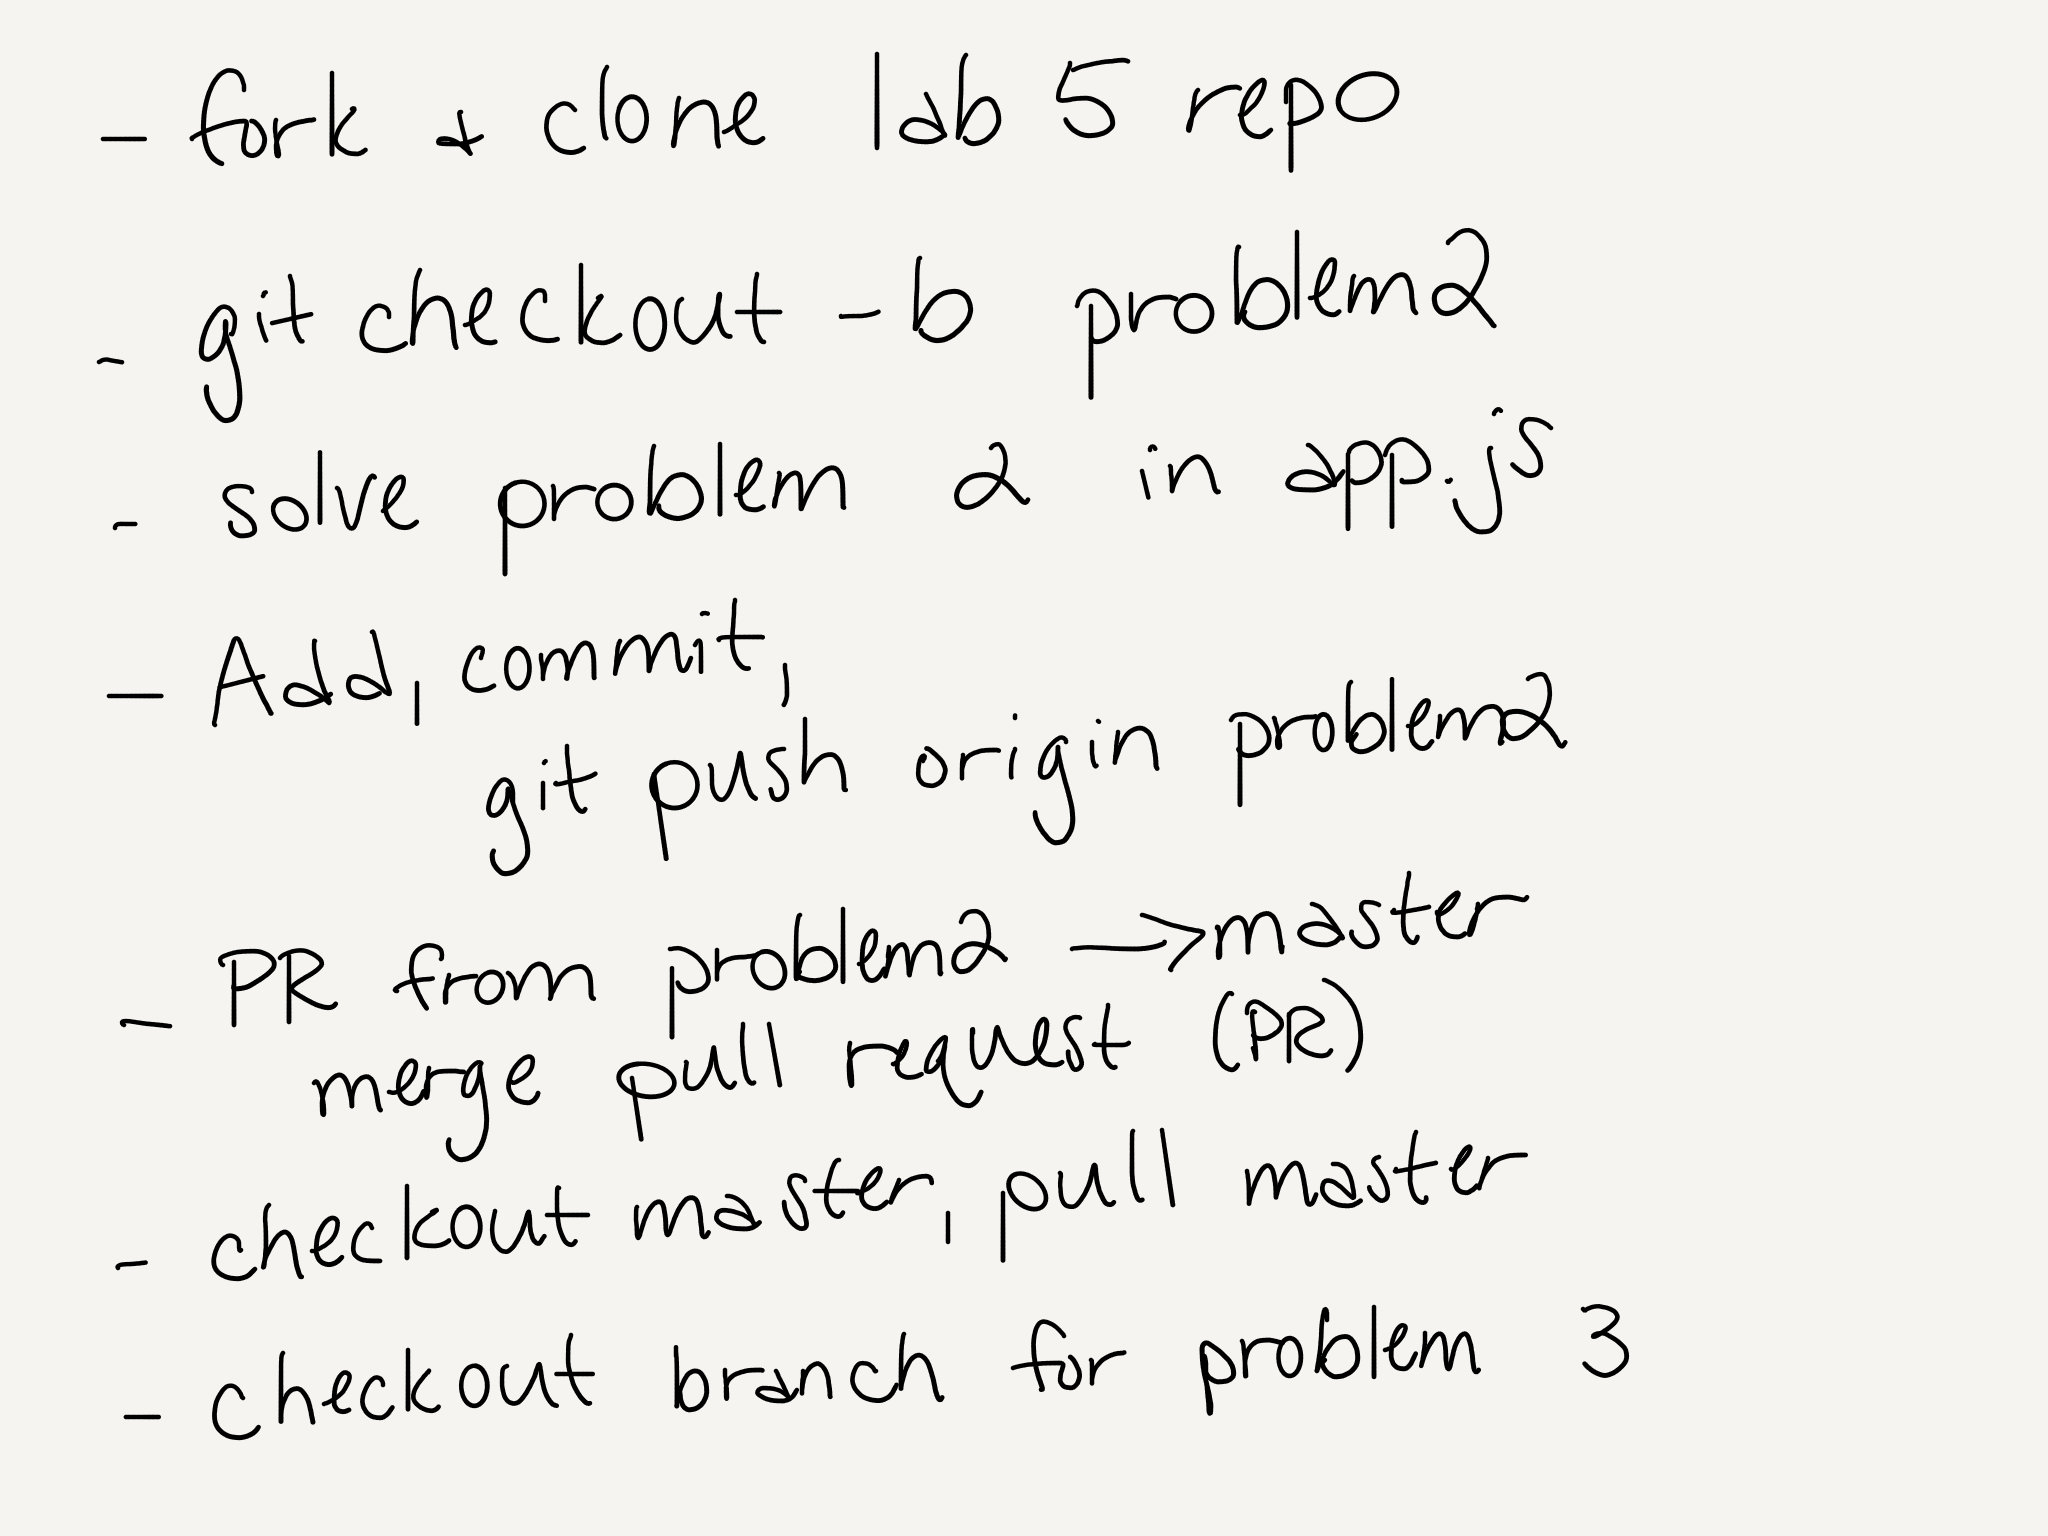 - fork & clone lab 5 repo
- git checkout -b problem2
- solve problem 2 in app.js
- Add, commit,
git push origin problem2
- PR from problem2 → master
merge pull request (PR)
- checkout master, pull master
- checkout branch for problem 3